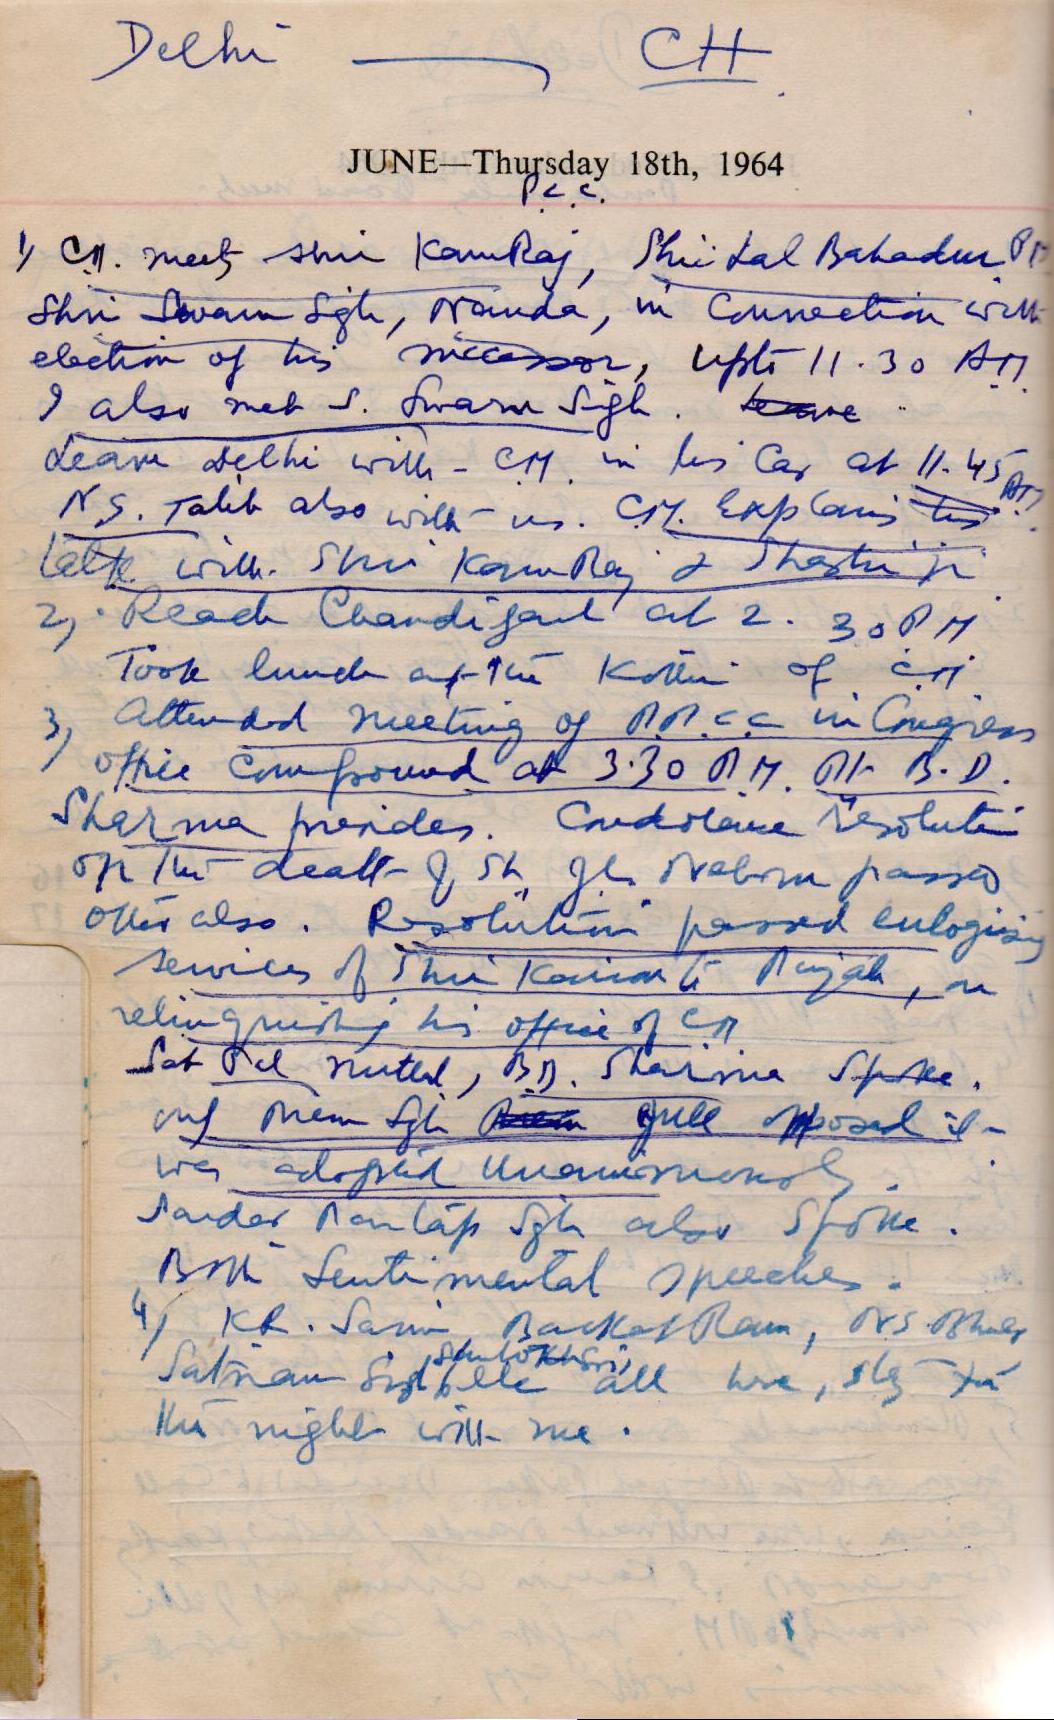 Delhi — CH
JUNE—Thursday 18th, 1964
P.C.C.
1) CM. meets Shri KamRaj, Shri Lal Bahadur PM
Shri Swarn Sgh, Nanda, in Connection with
election of his successor, upto 11.30 AM
I also met S. Swarn Sigh. leave
Leave Delhi with CM in his Car at 11.45 AM
N.S. Talib also with us. CM. Explains his
talk with Shri KamRaj & Shastri ji
2) Reach Chandigarh at 2.30 PM
Took lunch at the Kothi of CM
3) Attended meeting of P.P.C.C in Congress
office compound at 3.30 PM. Pt. B.D.
Sharma presides. Condolence resolution
on the death of Sh. Jl. Nehru passed
other also. Resolution passed eulogising
services of Shri Kairon to Punjab, on
relinquishing his office of CM
Sat Pal Mittal, B.D. Sharma Spoke.
only Prem Sgh Prem Gill opposed it
was adopted Unanimously.
Sardar Partap Sgh also Spoke.
Both Sentimental speeches.
4) K.R. Saini, Barkat Ram, N.S.
Satnam Sigh all here, stay for
the night with me.